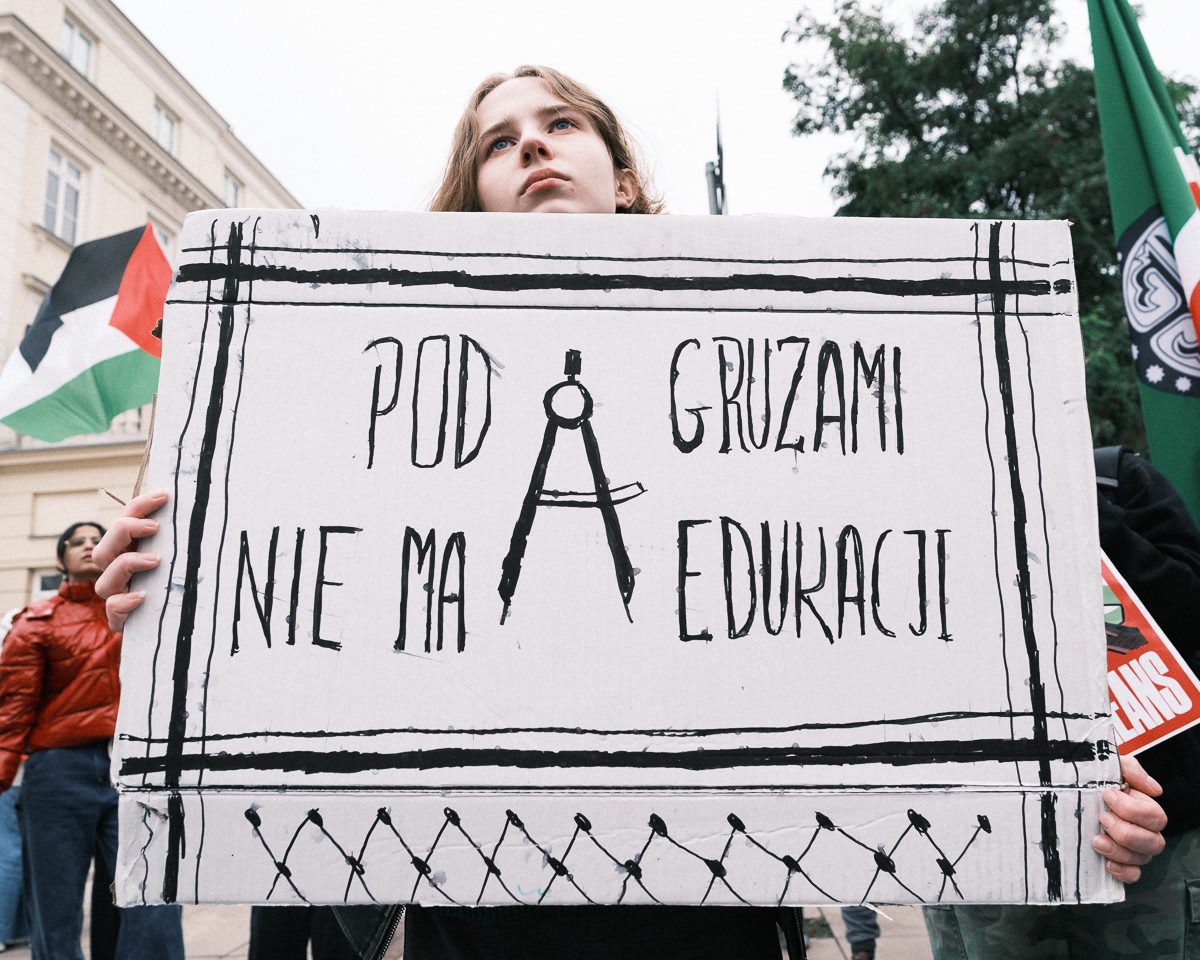 POD GRUZAMI
NIE MA EDUKACJI